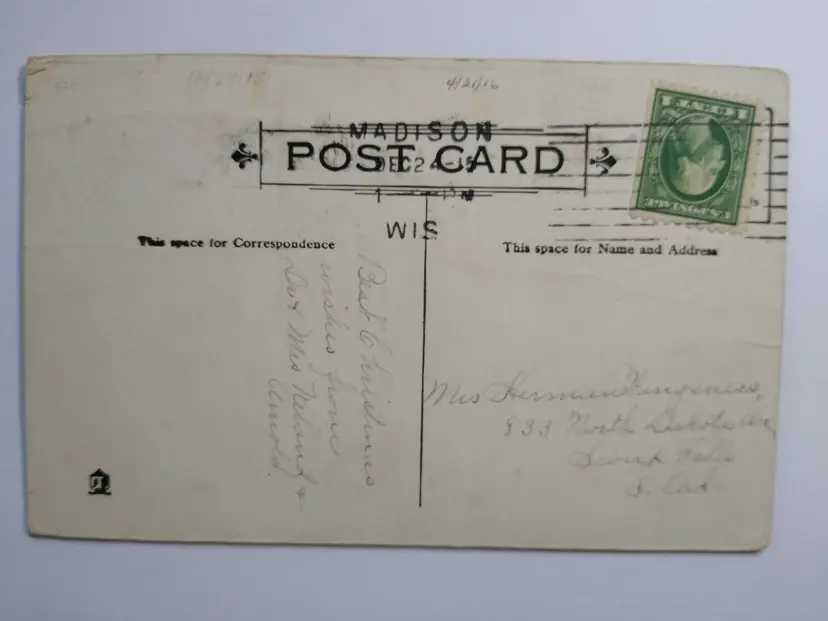 4/21/16
MADISON
POST CARD
DEC 24-15
1-PM
WIS
This space for Correspondence
This space for Name and Address
Best Christmas
wishes from
Dr & Mrs &
Arnold.
Mrs Herman
933 North Dakota Av,
Sioux Falls
S. Dak